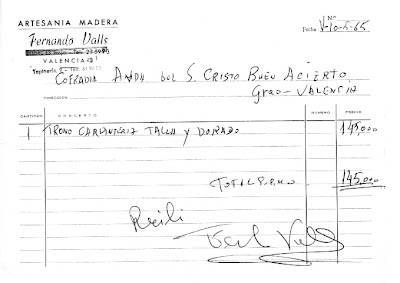 ARTESANIA MADERA
Fernando Valls
VALENCIA
Nº
Fecha V-10-5-65
COFRADIA ANDA DEL S. CRISTO BUEN ACIERTO,
GRAO-VALENCIA
DIRECCION
CANTIDAD CONCEPTO NUMERO PRECIO
1 TRONO CARPINTERIA TALLA Y DORADO 145,000
TOTAL 145,000
Recibi